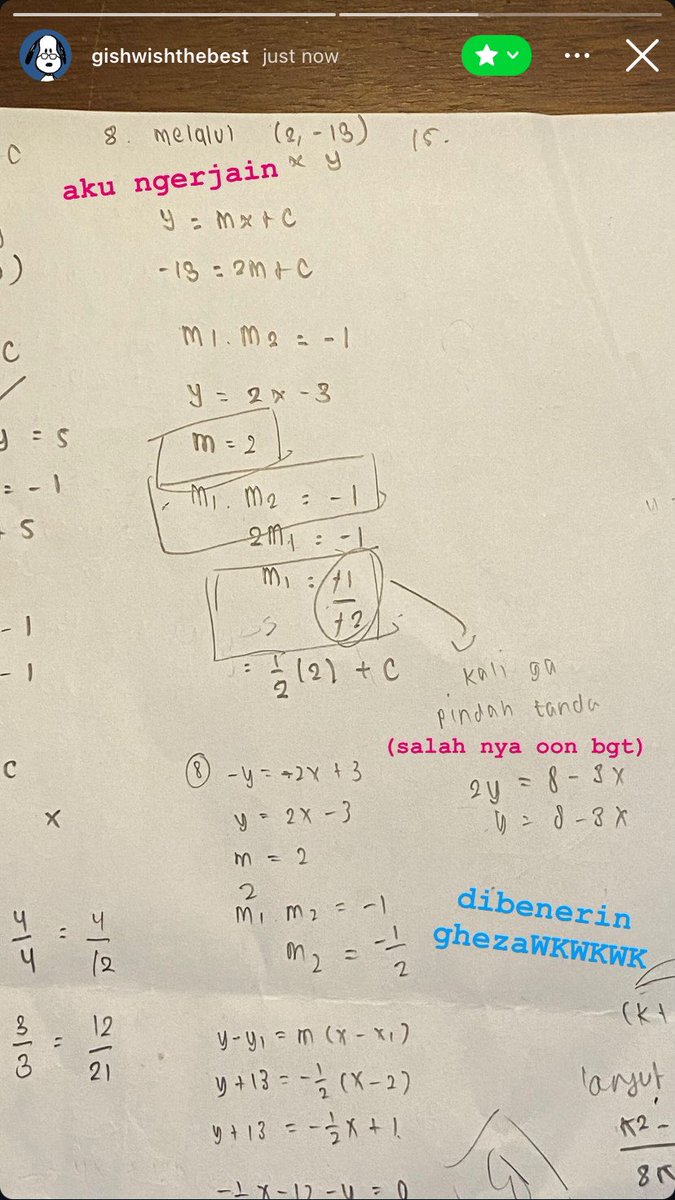 gishwishthebest just now
8. melalui (2, -13)
x y
15.
aku ngerjain
y = mx + C
-13 = 2m + C
m1 . m2 = -1
y = 2x - 3
m = 2
m1 . m2 = -1
2m1 = -1
m1 = +1/+2
= 1/2 (2) + C
kali ga
pindah tanda
(salah nya oon bgt)
C
)
C
y = 5
= -1
+ 5
-1
-1
C
x
4/4 = 4/12
3/3 = 12/21
8 -y = -2x + 3
y = 2x - 3
m = 2
2
m1 m2 = -1
m2 = -1/2
y - y1 = m (x - x1)
y + 13 = -1/2 (x - 2)
y + 13 = -1/2 x + 1
-1 x - 12 - y = 0
2y = 8 - 3x
y = 8 - 3x
dibenerin
ghezaWKWKWK
(k+
lanjut
k2 -
8k